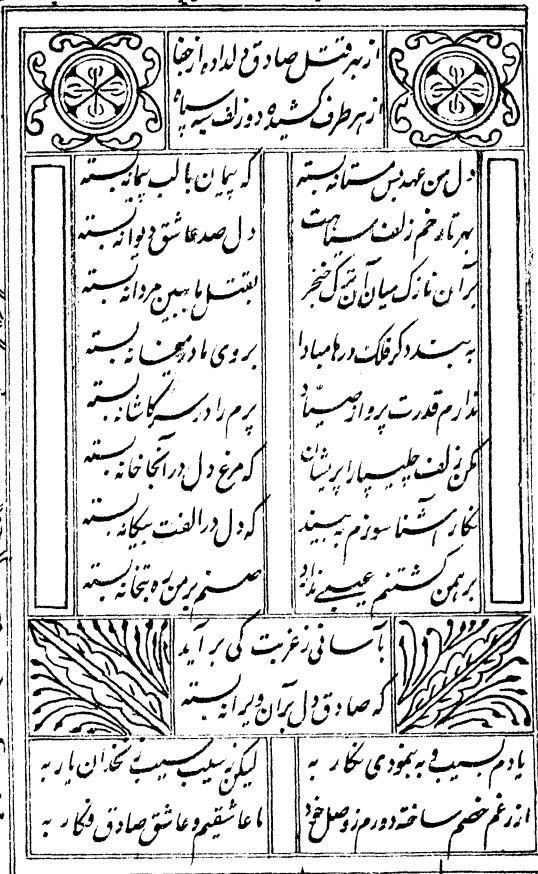 از بهر قتل صادق دلداده از جفا
از هر طرف کشیده دو زلف سیه سپاه
دل من عهد بس مستانه بسته
که پیمان با لب پیمانه بسته
بهر تار خم زلف سیاهت
دل صد عاشق دیوانه بسته
بر آن نازک میان آن ترک خنجر
بقتل ما ببین مردانه بسته
به بندد گر فلک درها مبادا
بروی ما در میخانه بسته
ندارم قدرت پرواز صیاد
پرم را در سر کاشانه بسته
مکن زلف چلیپا را پریشان
که مرغ دل در آنجا خانه بسته
نگار آشنا سوزم به بیند
که دل در الفت بیگانه بسته
برهمن گشتنم عیبی ندارد
صنم بر من ره بتخانه بسته
بآسانی ز غربت کی برآید
که صادق دل بر آن ویرانه بسته
یادم بسیب و به ننمودی نگار به
لیکن سیب سیب زنخدان یار به
از رغم خصم ساخته دورم ز وصل خود
ما عاشقیم و عاشق صادق فکار به